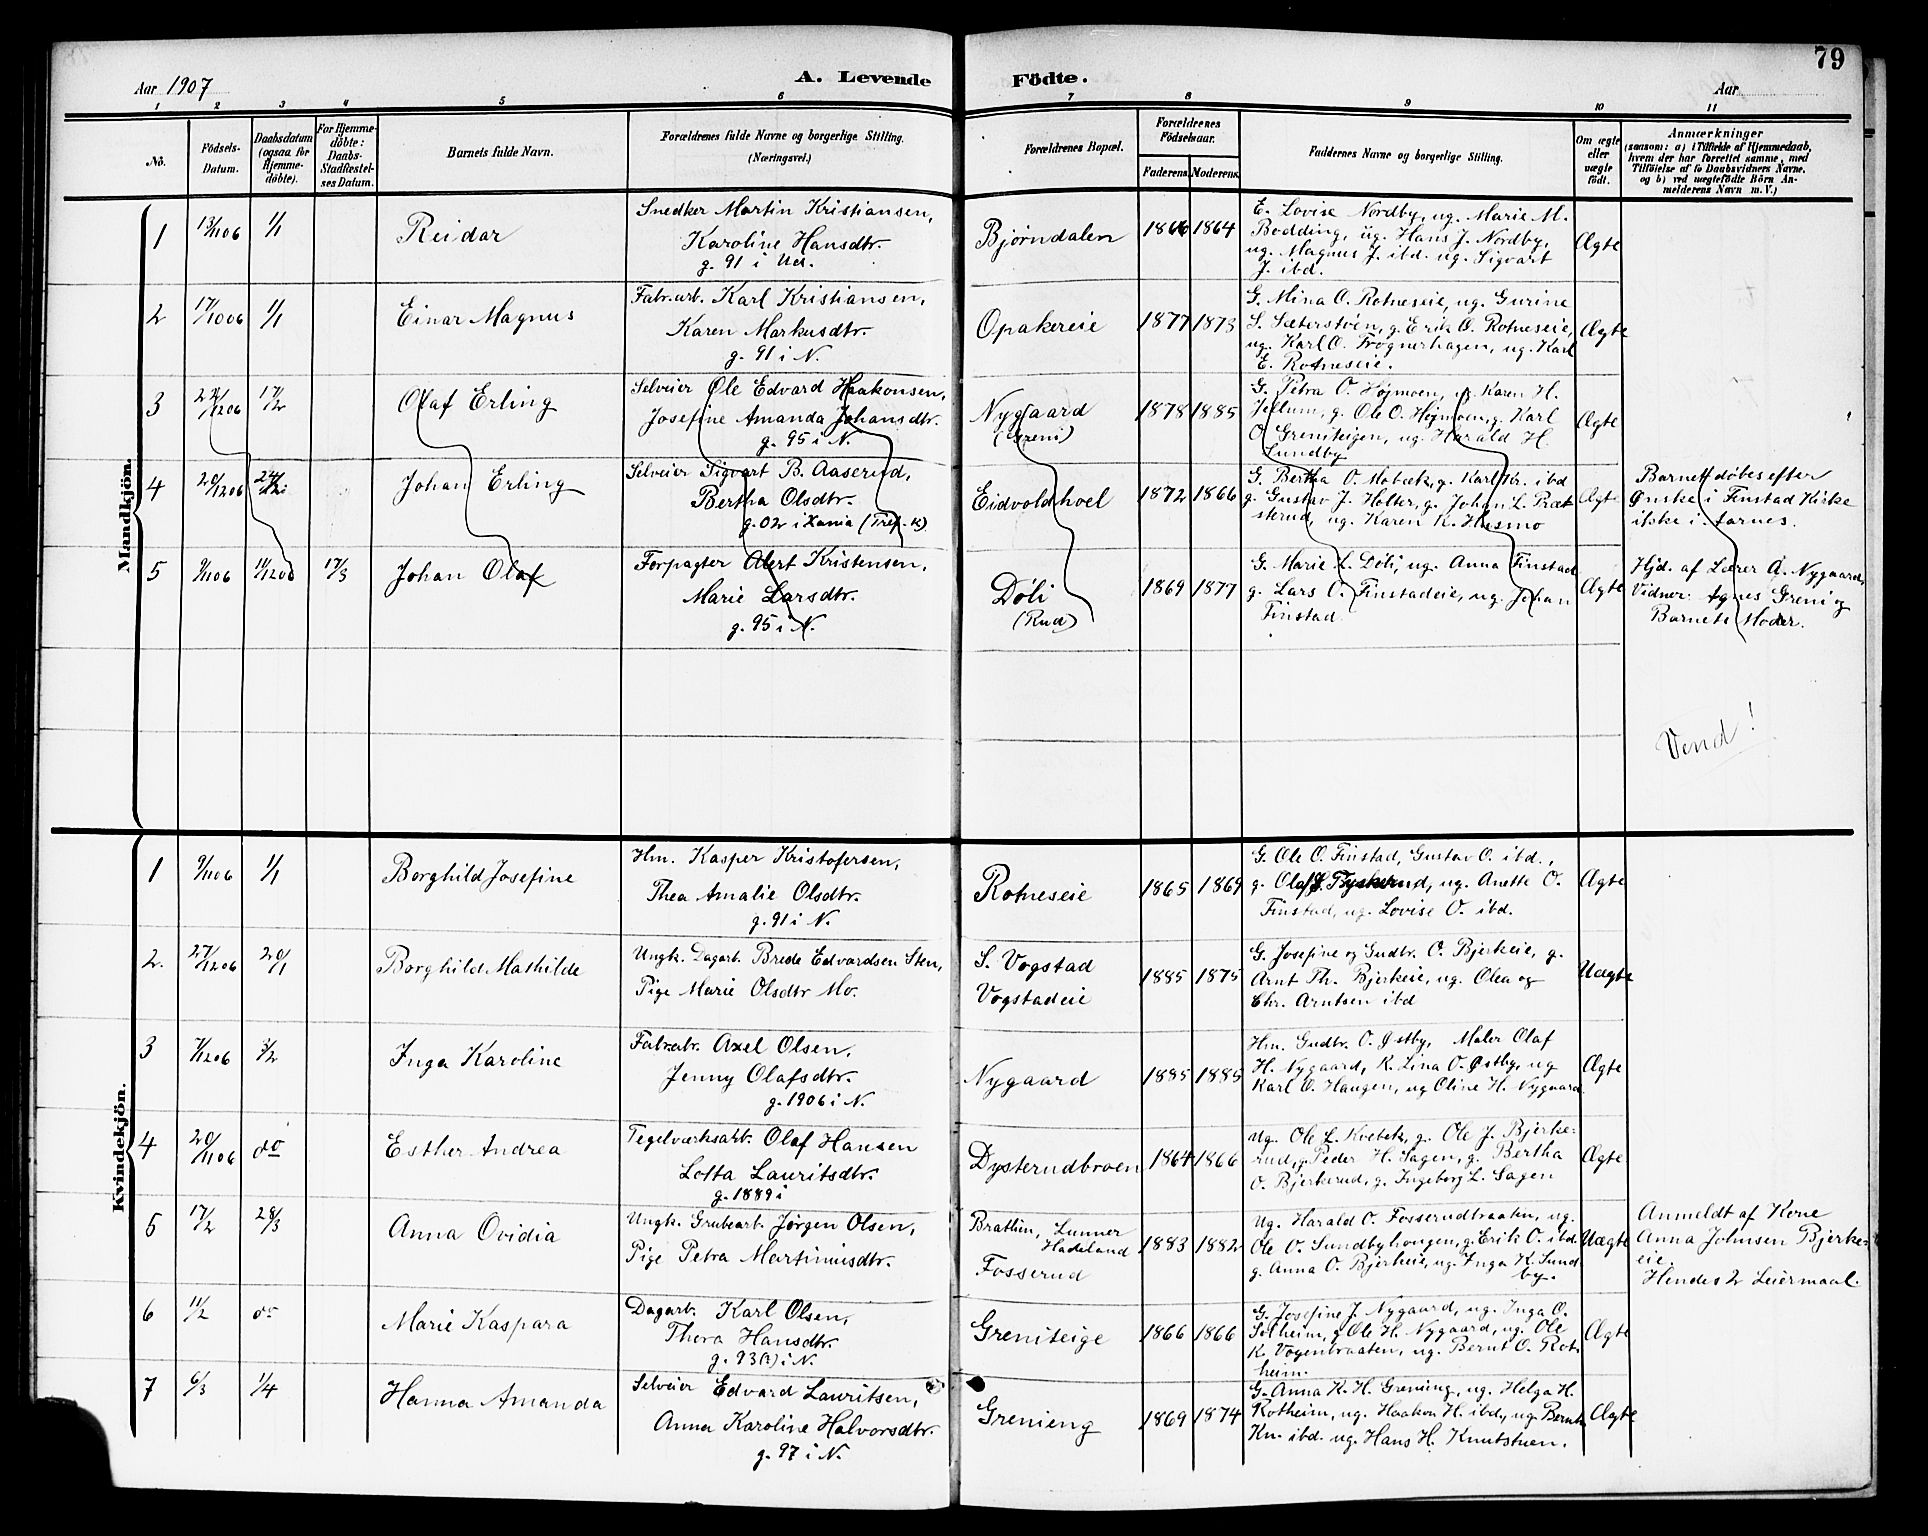 79
Aar 1907
A. Levende Födte.
Aar
1 2 3 4 5 6 7 8 9 10 11
Nö.
Födsels-Datum.
Daabsdatum (ogsaa for Hjemme-döbte).
For Hjemme-döbte: Daabs-Stadfæstel-ses Datum.
Barnets fulde Navn.
Forældrenes fulde Navne og borgerlige Stilling. (Næringsvei.)
Forældrenes Bopæl.
Forældrenes Födselsaar.
Faderens. Moderens.
Faddernes Navne og borgerlige Stilling.
Om ægte eller uægte födt.
Anmærkninger
(saasom: a) i Tilfælde af Hjemmedaab,
hvem der har forrettet samme, med
Tilföielse af to Daabsvidners Navne.
og b) ved uægtefödte Börn An-
melderens Navn m. V.)
Mandkjön.
1 13/1106 1/1 Reidar
Snedker Martin Kristiansen,
Karoline Hansdtr.
g. 91 i Ues.
Bjørndalen 1866 1864
E. Lovise Nordby, ug. Marie M.
Bodding, ug. Hans J. Nordby,
ug. Magnus J. ibd. ug. Sigvart
J. ibd.
Ægte
2 17/1006 1/1 Einar Magnus
Fabr.arb. Karl Kristiansen,
Karen Markusdtr.
g. 91 i N.
Opakereie 1877 1873
G. Mina O. Rotneseie, ug. Gurine
S. Sæterstøen, g. Erik O. Rotneseie,
ug. Karl O. Frognerhagen, ug. Karl
E. Rotneseie.
Ægte
3 22/1206 17/2 Olaf Erling
Selveier Ole Edvard Haakonsen,
Josefine Amanda Johansdtr.
g. 95 i N.
Nygaard
(Greni)
1878 1885
G. Petra O. Højmoen, ug. Karen H.
Jellum, g. Ole O. Højmoen, g. Karl
O. Greniteigen, ug. Harald H.
Sundby
Ægte
4 20/1206 24/2 Johan Erling
Selveier Sigvart B. Aaserud,
Bertha Olsdtr.
g. 02 i Xania (Tref. K)
Eidvoldhoel 1872 1866
G. Bertha O. Mobæk, g. Karl Kr. ibd
g. Gustav J. Holter, g. Johan L. Præt-
sterud, ug. Karen K. Husmo
Ægte
Barnet døbes efter
Ønske i Finstad Kirke
ikke i Aarnes.
5 9/1106 11/1206 17/3 Johan Olaf
Forpagter Alert Kristensen,
Marie Larsdtr.
g. 95 i N.
Døli
(Rud)
1869 1877
G. Marie L. Døli, ug. Anna Finstad
g. Lars O. Finstadeie, ug. Johan
Finstad
Ægte
Hjd. af Lærer A. Nygaard,
Vidner: Agnes Greni og
Barnets Moder.
Vend!
Kvindekjön.
1 9/1106 1/1 Borghild Josefine
Hm. Kasper Kristofersen,
Thea Amalie Olsdtr.
g. 91 i N.
Rotneseie 1865 1869
G. Ole O. Finstad, Gustav O. ibd.,
g. Olaf J. Fyskerud, ug. Anette O.
Finstad, ug. Lovise O. ibd.
Ægte
2. 27/1206 20/1 Borghild Mathilde
Ungk. Dagarb. Brede Edvardsen Sten,
Pige Marie Olsdtr Mo.
S. Vogstad
Vogstadeie
1885 1875
G. Josefine og Gudbr. O. Bjerkeie, g.
Arnt Th. Bjerkeie, ug. Olea og
Chr. Arntsen ibd
Uægte
3 7/1206 3/2 Inga Karoline
Fabr.arb. Axel Olsen,
Jenny Olafsdtr.
g. 1906 i N.
Nygaard 1885 1885
Hm. Gudbr. O. Østby, Maler Olaf
H. Nygaard, K. Lina O. Østby, ug
Karl O. Haugen, ug Oline H. Nygaard
Ægte
4 20/1106 do Esther Andrea
Tegelværksarb. Olaf Hansen
Lotta Lauritsdtr.
g. 1889 i
Dysterudbroen 1864 1866
Ug. Ole L. Kvebek, g. Ole J. Bjerke-
rud, g. Peder H. Sagen, g. Bertha
O. Bjerkerud, g. Ingeborg L. Sagen
Ægte
5 17/2 28/3 Anna Ovidia
Ungk. Grubearb. Jørgen Olsen,
Pige Petra Martiniusdtr.
Brattlien, Lunner
Hadeland
Fosserud
1883 1882
Ug. Harald O. Fosserudbraaten, ug.
Ole O. Sundbyhougen, g. Erik O. ibd
g. Anna O. Bjerkeie, ug. Inga K. Sund-
by.
Uægte
Anmeldt af Kone
Anna Johnsen Bjerke-
eie.
Hendes 2 Leiermaal.
6 11/2 do Marie Kaspara
Dagarb. Karl Olsen,
Thora Hansdtr.
g. 93(?) i N.
Greniteige 1866 1866
G. Josefine J. Nygaard, ug. Inga O.
Solheim, g. Ole H. Nygaard, ug. Ole
K. Vogenbraaten, ug. Bernt O. Rot-
heim.
Ægte
7 6/3 1/4 Hanna Amanda
Selveier Edvard Lauritsen,
Anna Karoline Halvorsdtr.
g. 97 i N.
Grenieng 1869 1874
G. Anna K. H. Grenieng, ug. Helga H.
Rotheim, ug. Haakon H. ibd., ug. Bernt
Kn. ibd. ug. Hans H. Knutstuen.
Ægte